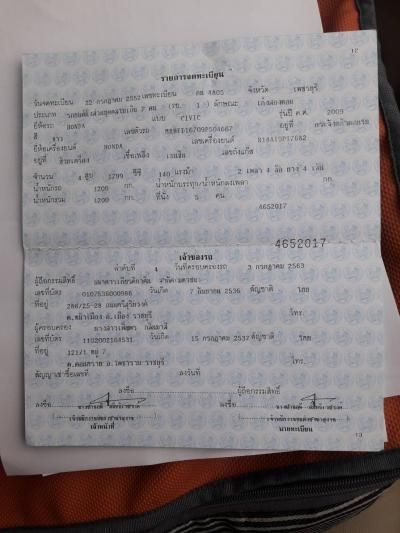 12
รายการจดทะเบียน
วันจดทะเบียน 22 กรกฎาคม 2552 เลขทะเบียน 4805 จังหวัด เพชรบุรี
ประเภท รถยนต์นั่งส่วนบุคคลไม่เกิน 7 คน (รย. 1 ) ลักษณะ เก๋งสองตอน
ยี่ห้อรถ HONDA แบบ CIVIC รุ่นปี ค.ศ. 2009
สี ขาว เลขตัวรถ อยู่ที่
ยี่ห้อเครื่องยนต์ HONDA เลขเครื่องยนต์
อยู่ที่ เชื้อเพลิง เบนซิน เลขถังแก๊ส
จำนวน 4 สูบ 1799 ซีซี 140 แรงม้า 2 เพลา 4 ล้อ ยาง 4 เส้น
น้ำหนักรถ 1200 กก. น้ำหนักบรรทุก/น้ำหนักลงเพลา กก.
น้ำหนักรวม 1200 กก. ที่นั่ง 5 คน
4652017
4652017
เจ้าของรถ
ลำดับที่ 4 วันที่ครอบครองรถ 3 กรกฎาคม 2563
ผู้ถือกรรมสิทธิ์
เลขที่บัตร 0107536000986 วันเกิด 7 มิถุนายน 2536 สัญชาติ ไทย
ที่อยู่ 286/25-28 ถนนศรีสุริยวงศ์
ต.หน้าเมือง อ.เมือง ราชบุรี โทร.
ผู้ครอบครอง
เลขที่บัตร 1102002164531 วันเกิด 15 กรกฎาคม 2537 สัญชาติ ไทย
ที่อยู่ 121/1 หมู่ 7
อ.โพธาราม ราชบุรี โทร.
สัญญาเช่าซื้อเลขที่ ลงวันที่
ลงชื่อ ผู้ถือกรรมสิทธิ์
ลงชื่อ ลงชื่อ
เจ้าหน้าที่ นายทะเบียน
13